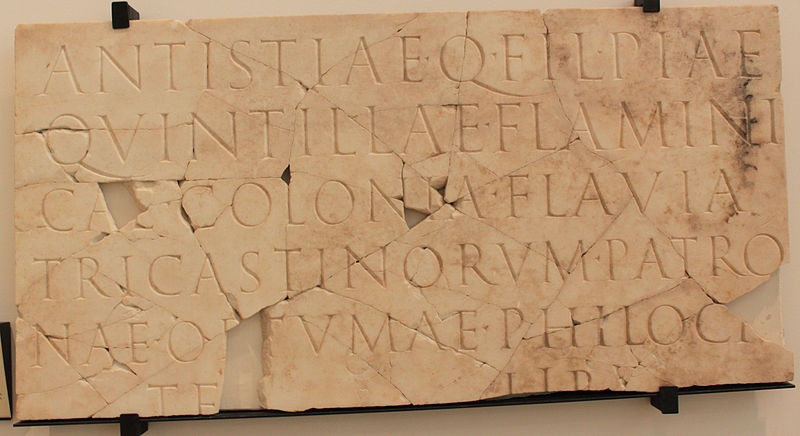 ANTISTIAE·Q·FIL·PIAE
QVINTILLAE·FLAMINI
CAE·COLONIA·FLAVIA
TRICASTINORVM·PATRO
NAE·O VMAE·PHILOC
TE LIB